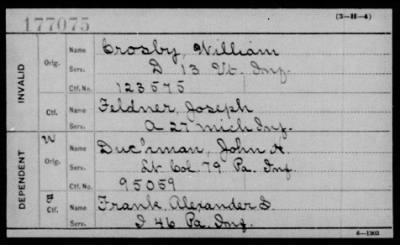 177075
(3-H-4)
INVALID
Orig. Name Crosby, William
Serv. D 13 Vt. Inf.
Ctf. No. 123575
Ctf. Name Feldner, Joseph
Serv. A 27 Mich Inf.
DEPENDENT
W Orig. Name Duc'rman, John H.
Serv. Lt Col. 79 Pa. Inf
Ctf. No. 95059
Ctf. Name Frank, Alexander S.
Serv. I 46 Pa. Inf.
6-1903